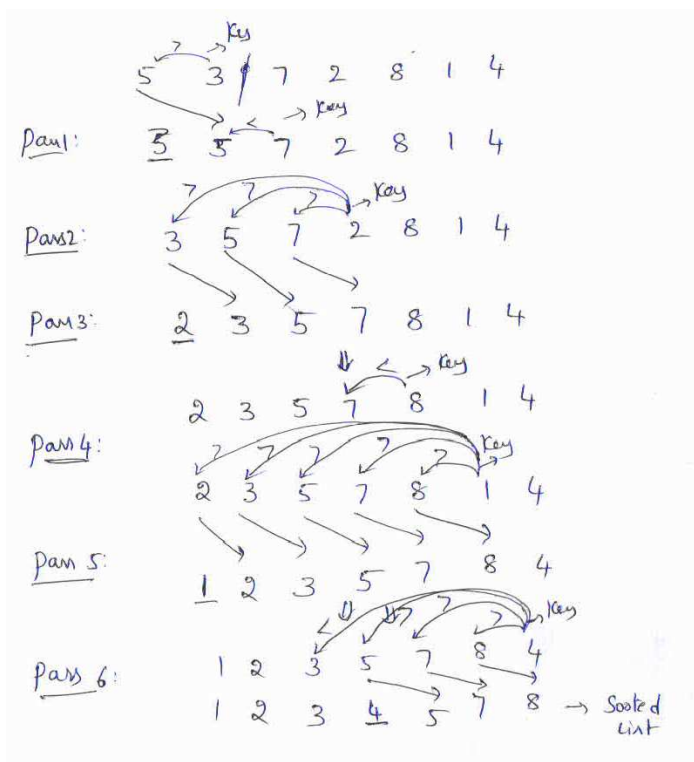 > → Key
5 3 7 2 8 1 4
< → Key
Pass1: 3 5 7 2 8 1 4
? ? ? → Key
Pass2: 3 5 7 2 8 1 4
Pass3: 2 3 5 7 8 1 4
< → Key
2 3 5 7 8 1 4
Pass 4:
? ? ? ? ? Key
2 3 5 7 8 1 4
Pass 5: 1 2 3 5 7 8 4
< ? ? ? Key
Pass 6: 1 2 3 5 7 8 4
1 2 3 4 5 7 8 → Sorted
List